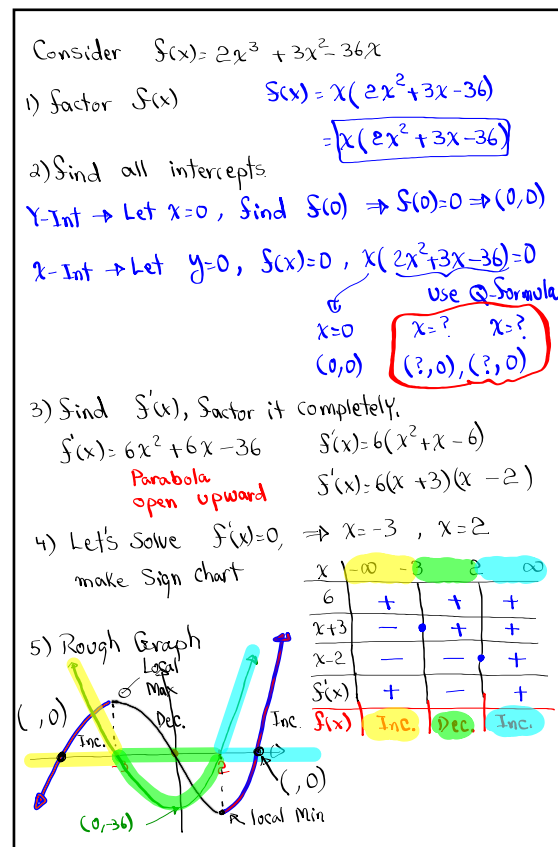 Consider f(x)= 2x³ + 3x² - 36x
1) factor f(x) f(x) = x(2x² + 3x - 36)
= x(2x² + 3x - 36)
2) find all intercepts.
Y-Int → Let x=0, find f(0) ⇒ f(0)=0 ⇒ (0,0)
x-Int → Let y=0, f(x)=0, x(2x²+3x-36)=0
Use Q-formula
x=0 x=? x=?
(0,0) (?,0), (?,0)
3) find f'(x), factor it completely.
f'(x) = 6x² + 6x - 36 f'(x) = 6(x² + x - 6)
Parabola
open upward
f'(x) = 6(x + 3)(x - 2)
4) Let's Solve f'(x)=0, ⇒ x = -3 , x = 2
make Sign Chart
x -∞ -3 2 ∞
6 + + +
x+3 - + +
x-2 - - +
f'(x) + - +
f(x) Inc. Dec. Inc.
5) Rough Graph
Local
Max
( ,0) Inc. Dec. Inc.
-3 2
( ,0)
(0,-36) local Min